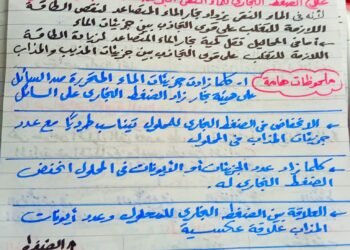 على الضغط البخارى
لأنه فى الماء النقى يزداد بخار الماء المتصاعد لنقص الطاقة
اللازمة للتغلب على قوى التجاذب بين جزيئات الماء
- أما فى المحاليل تقل كمية بخار الماء المتصاعد لزيادة الطاقة
اللازمة للتغلب على قوى التجاذب بين جزيئات المذيب والمذاب
ملحوظات هامة
١- كلما زادت جزيئات الماء المتحررة من السائل
على هيئة بخار زاد الضغط البخارى على السائل
- الانخفاض فى الضغط البخارى للمحلول يتناسب طرديًا مع عدد
جزيئات المذاب فى المحلول
- كلما زاد عدد الجزيئات أو الأيونات فى المحلول انخفض
الضغط البخارى له.
- العلاقة بين الضغط البخارى للمحلول وعدد أيونات
المذاب علاقة عكسية